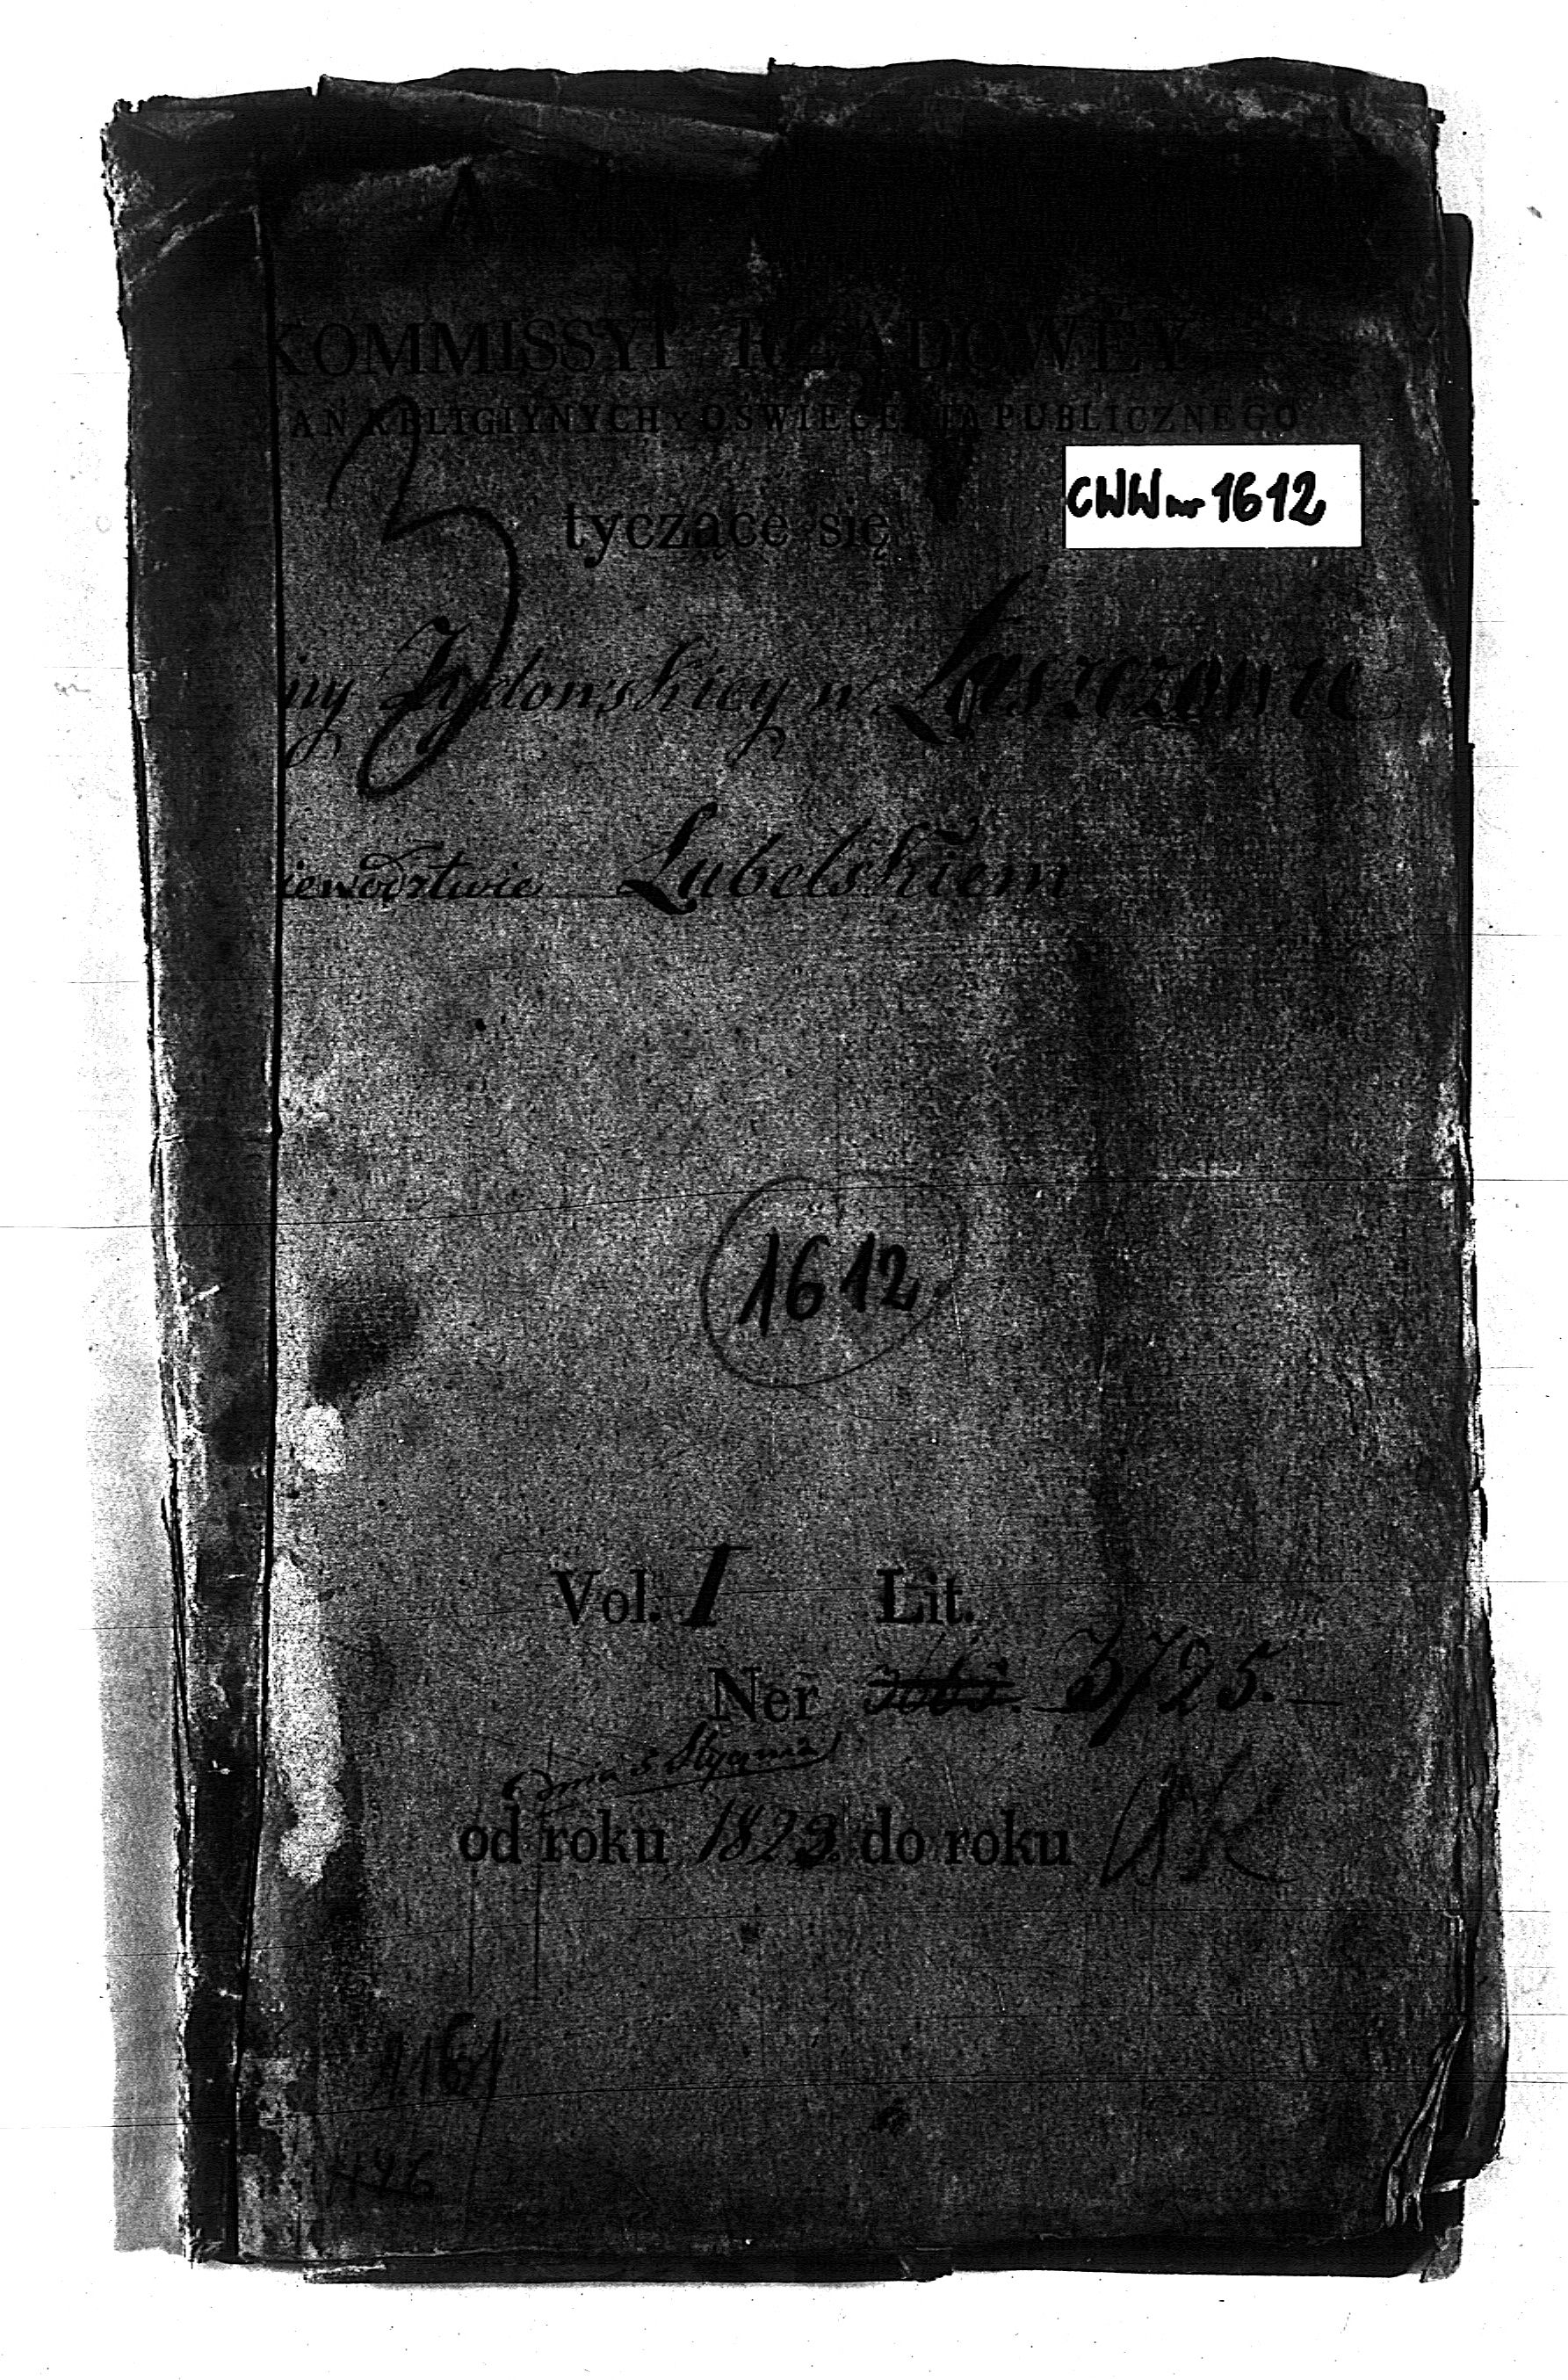 KOMMISSYI RZĄDOWEY
AN RELIGIYNYCH Y OSWIECENIA PUBLICZNEGO
CWW nr 1612
3
tyczące się
ny Żydowskiey w Łaszczowie
iewodztwie Lubelskiem
1612.
Vol. I Lit.
Ner 3725.
dnia 5 Stycznia
od roku 1823 do roku